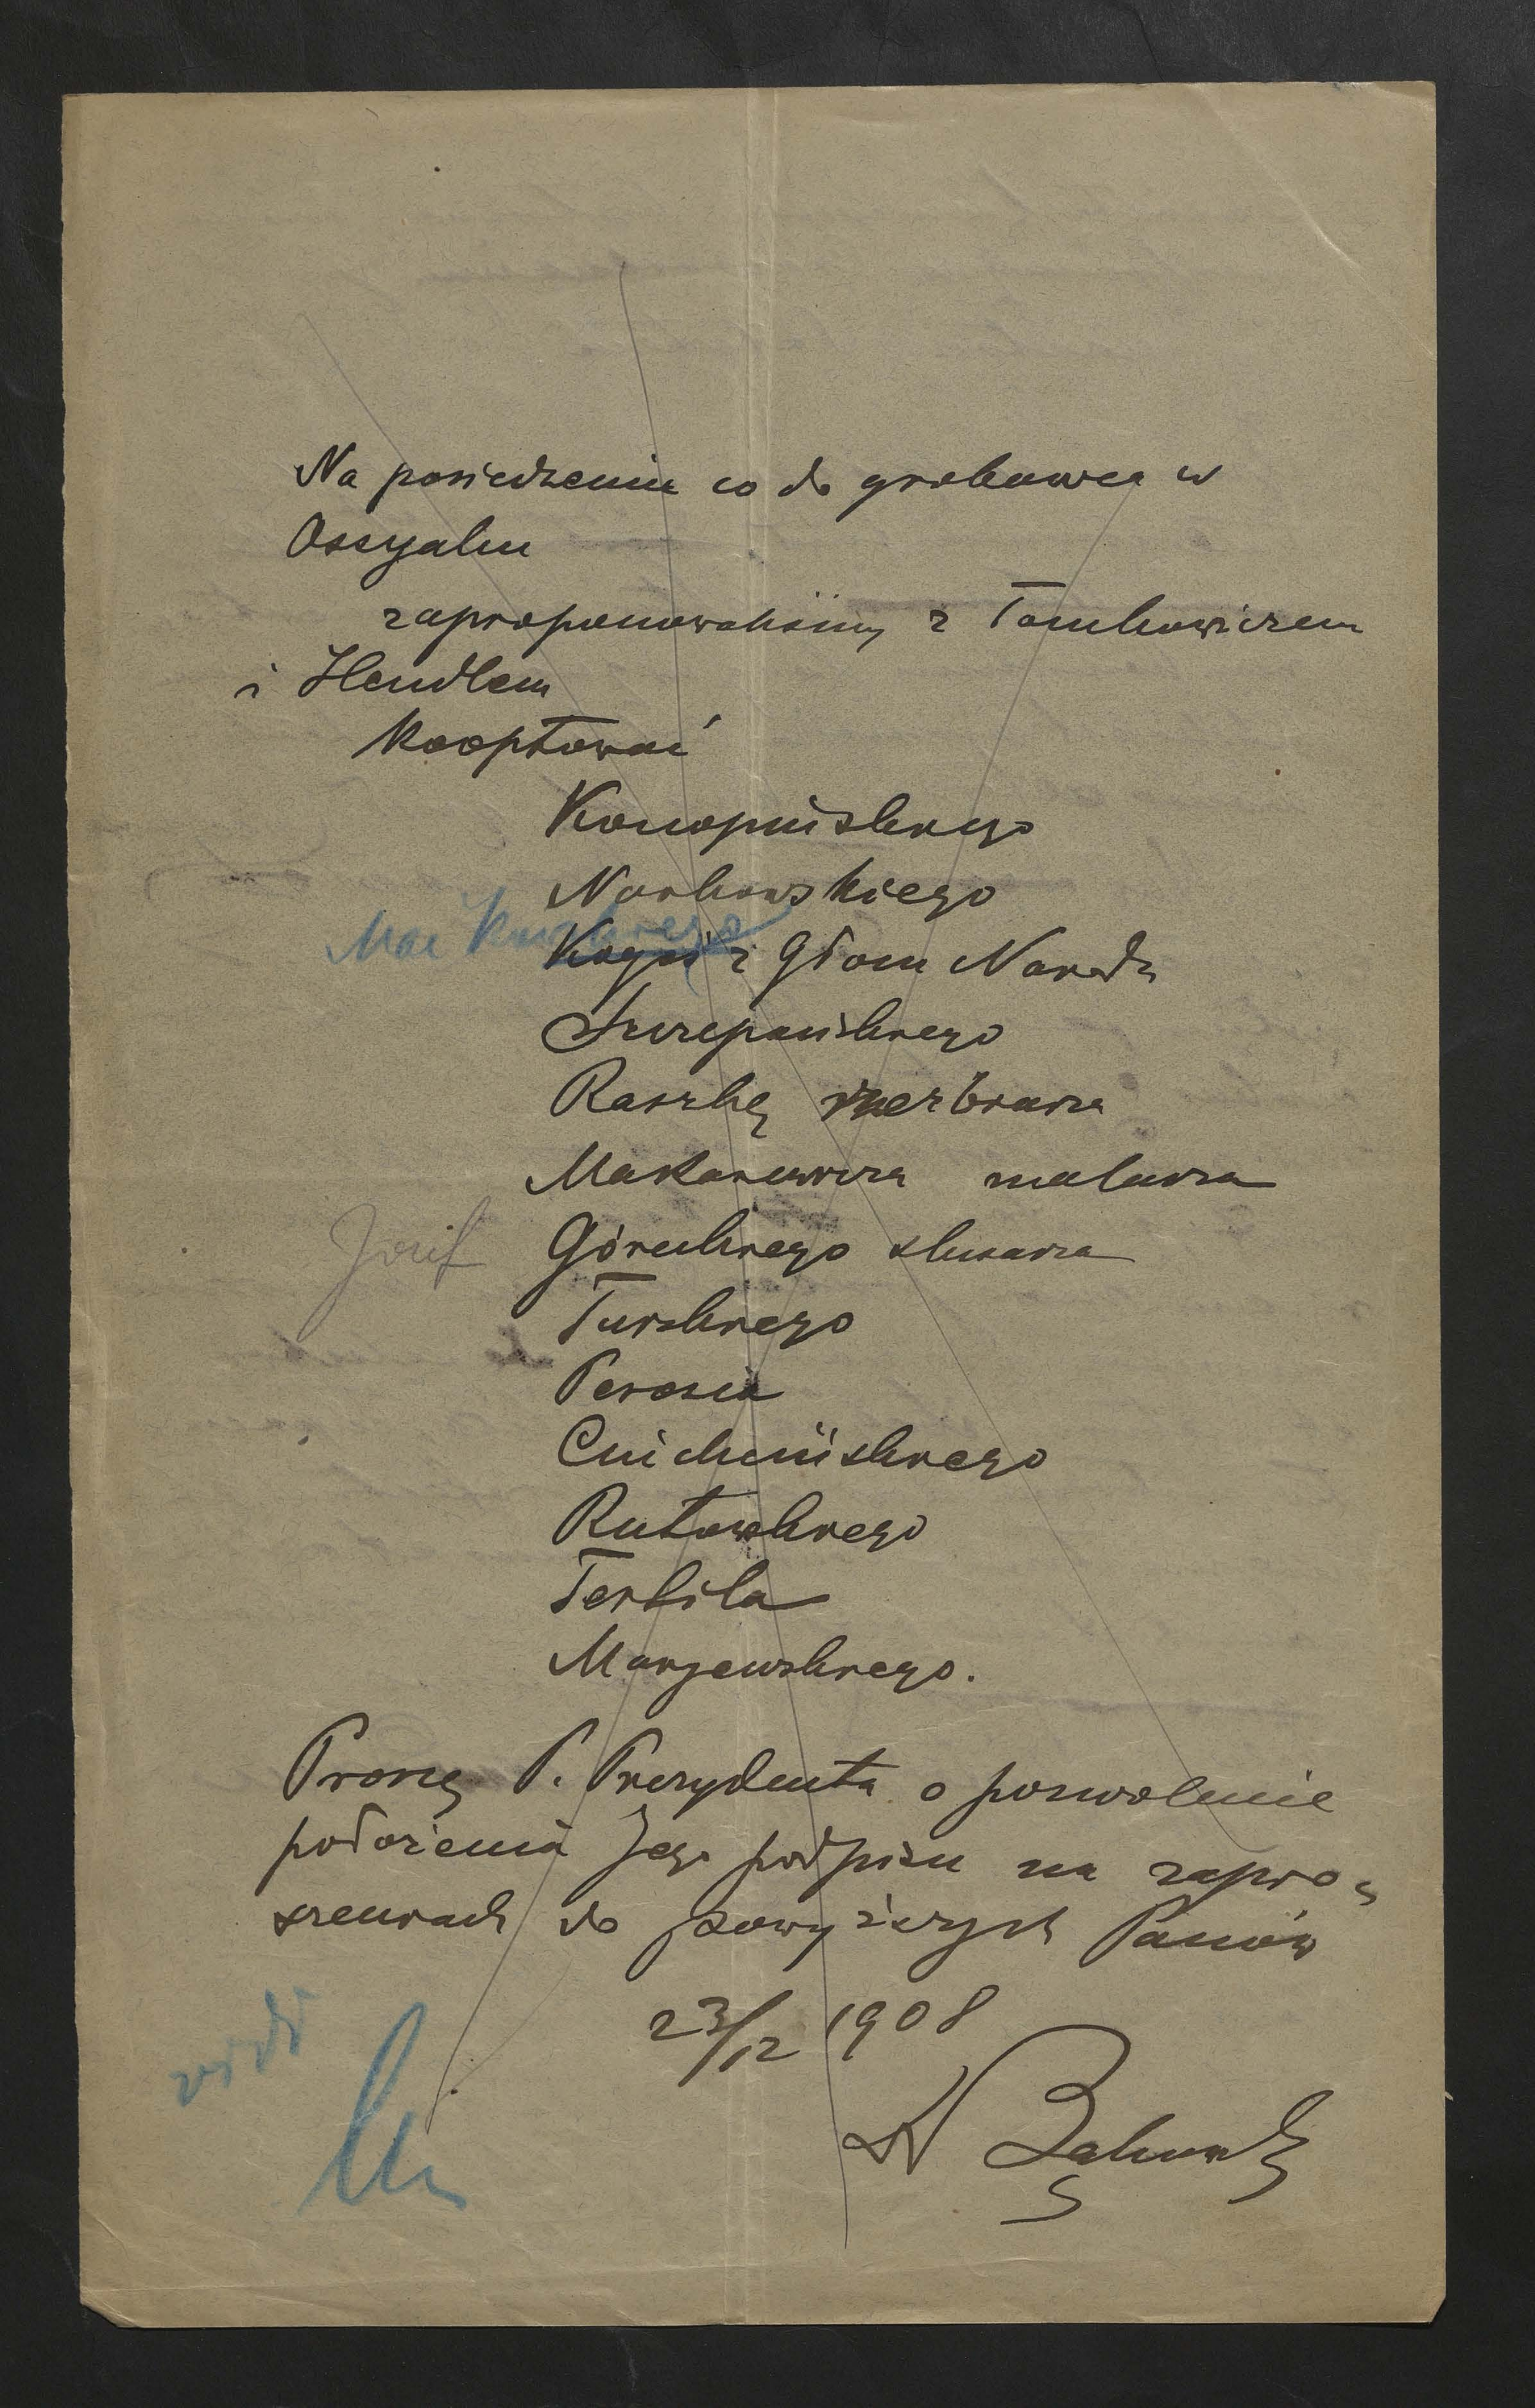 Na posiedzeniu co do grobowca w
Ossyaku
zaproponowaliśmy z Tomkowiczem
i Hendlem
Kooptować
Konopińskiego
Noskowskiego
Kogoś z Głosu Narodu
Szczepańskiego
Raszkę rzeźbiarza
Makarewicza malarza
Józef Góreckiego ślusarza
Turskiego
Perosia
Cuichcińskiego
Rutowskiego
Tertila
Maryewskiego.
Proszę P. Prezydenta o pozwolenie
położenia Jego podpisu na zapro-
szeniach do powyższych Panów
23/12 1908